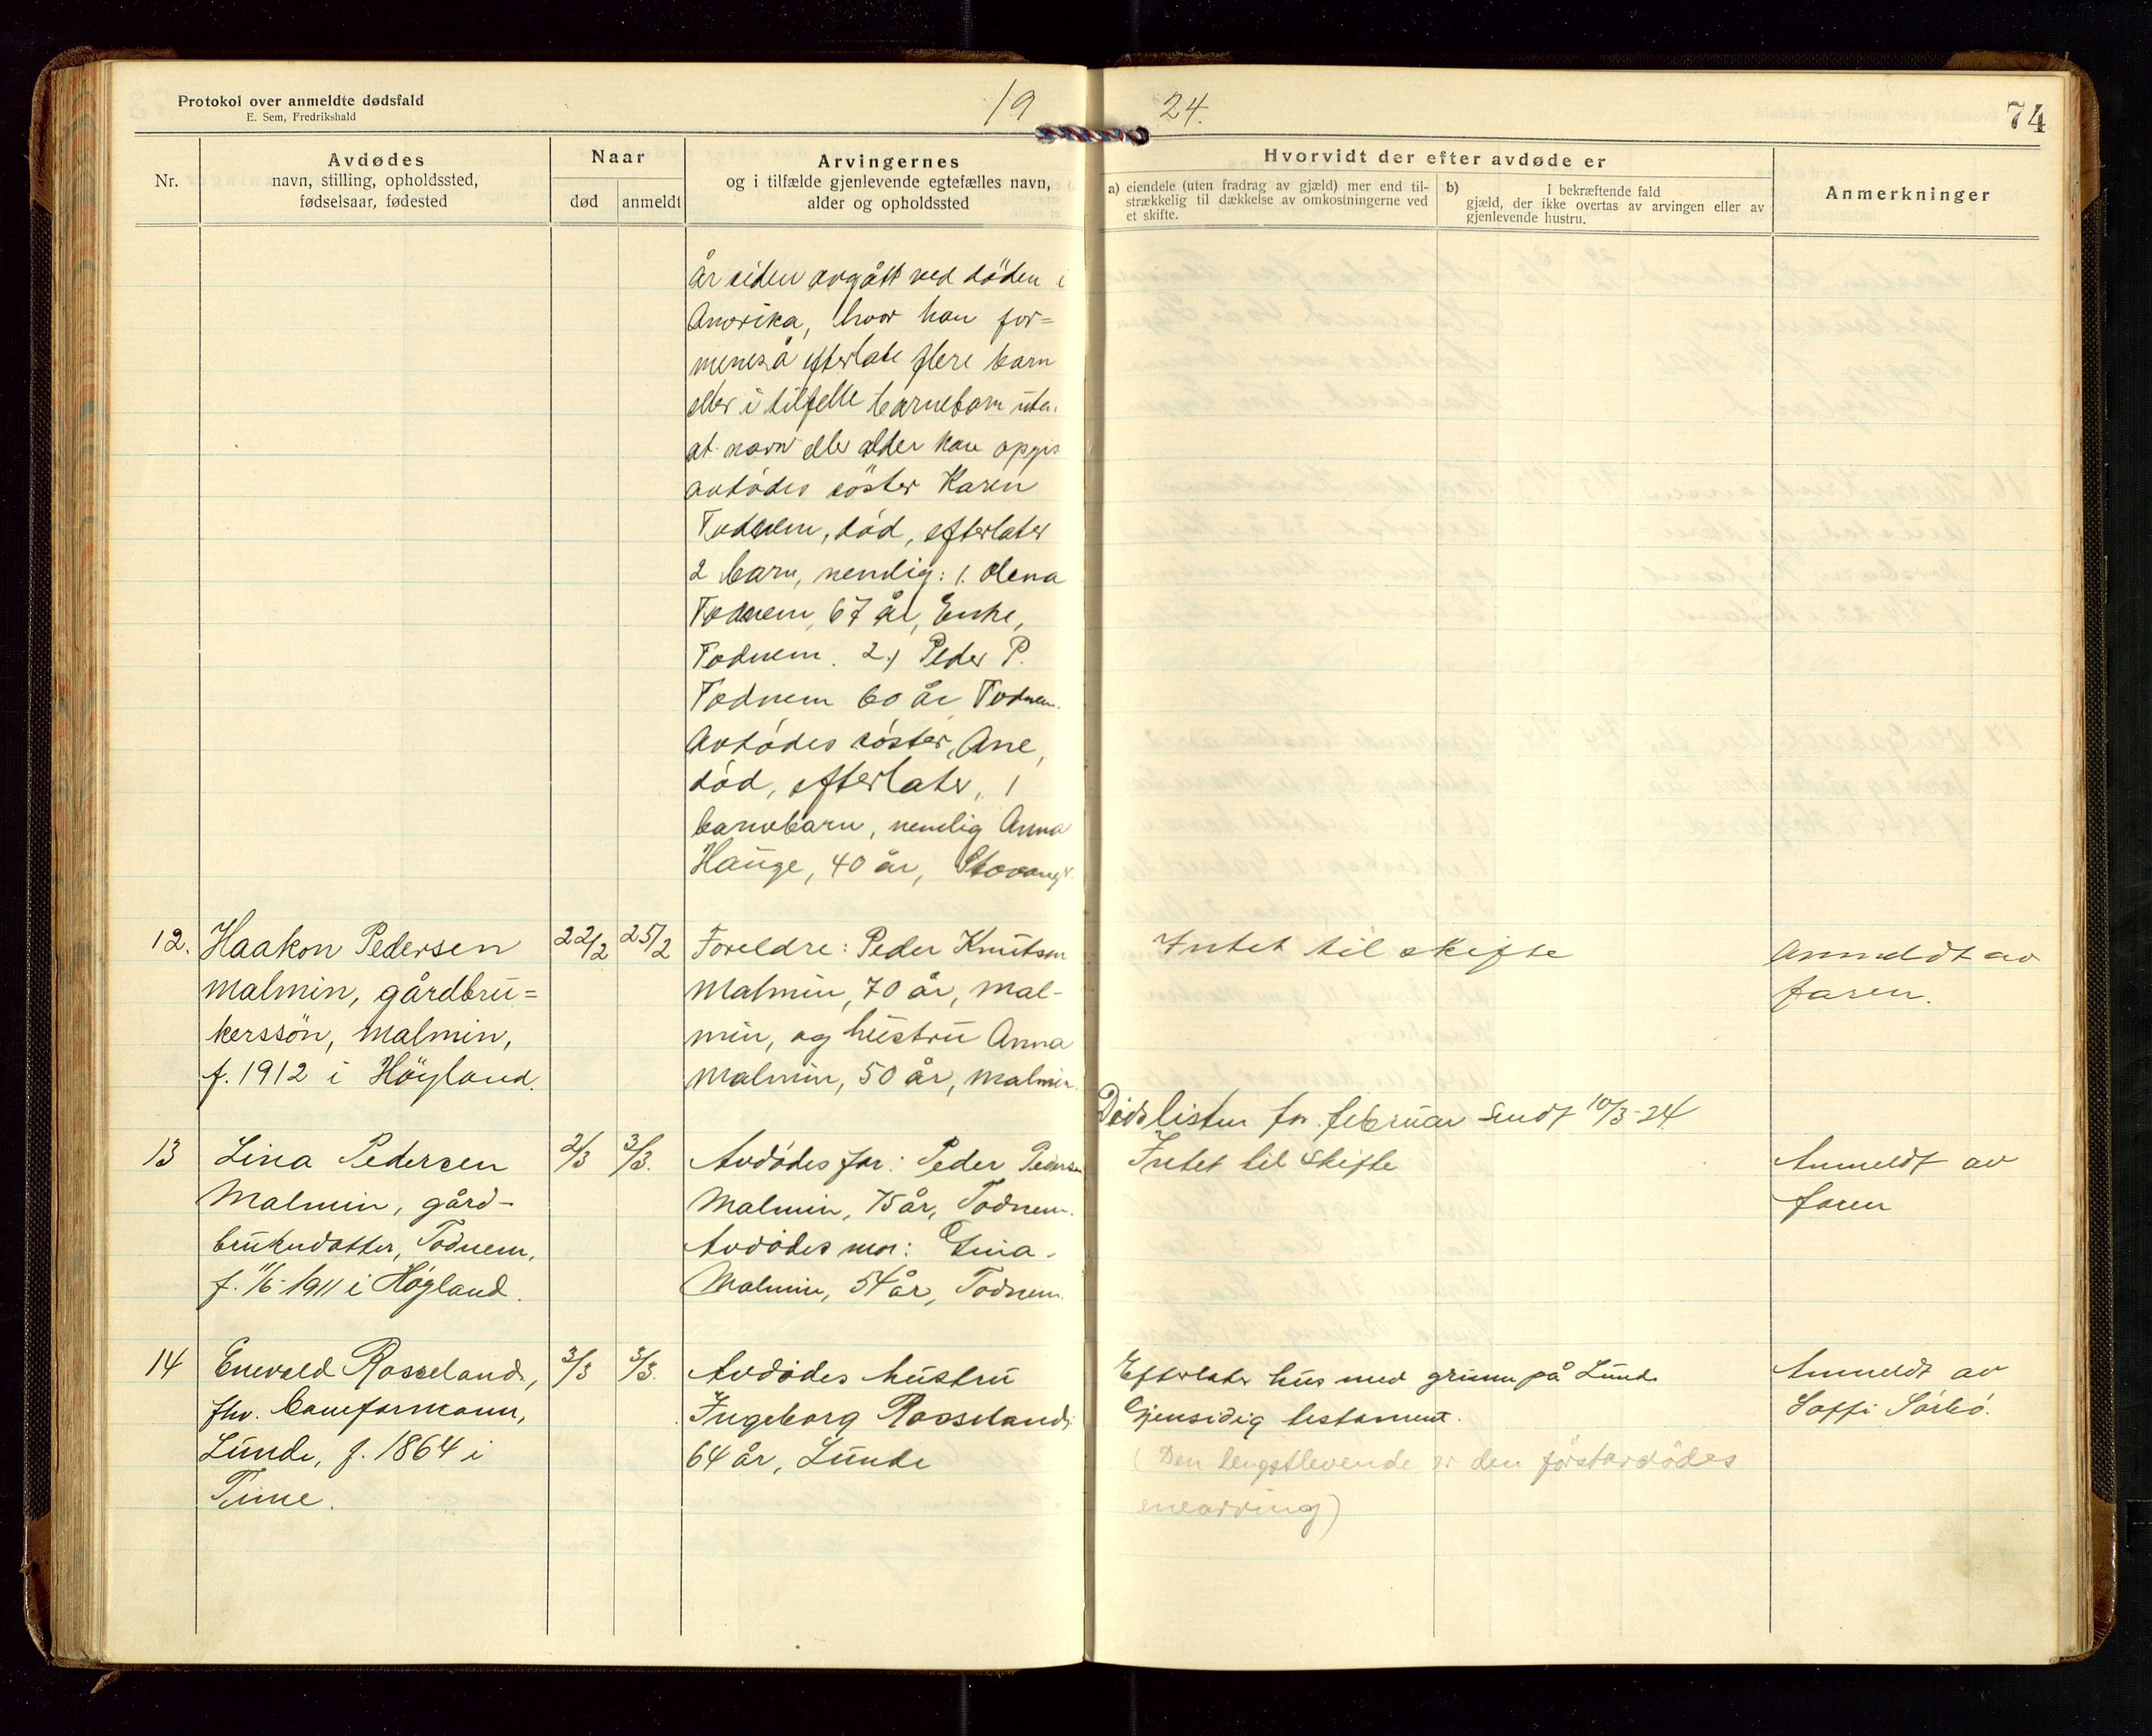 Protokol over anmeldte dødsfald
E. Sem, Fredrikshald
19
24.
74
Nr.
Avdødes
navn, stilling, opholdssted,
fødselsaar, fødested
Naar
død
anmeldt
Arvingernes
og i tilfælde gjenlevende egtefælles navn,
alder og opholdssted
Hvorvidt der efter avdøde er
a) eiendele (uten fradrag av gjæld) mer end til-
strækkelig til dækkelse av omkostningerne ved
et skifte.
b) I bekræftende fald
gjæld, der ikke overtas av arvingen eller av
gjenlevende hustru.
Anmerkninger
år siden avgått ved döden i
Amerika, hvor han for=
menes å efterlate flere barn
eller i tilfelle barnebarn uten
at navn eller alder kan opgis
avdödes söster Karen
Todnem, död, efterlater
2 barn, nemlig: 1. Olena
Todnem, 67 år, Enke,
Todnem. 2.) Peder P.
Todnem 60 år Todnem.
Avdödes söster, Ane,
död, efterlater, 1
barnebarn, nemlig Anna
Hauge, 40 år, Stavanger
12.
Haakon Pedersen
Malmin, gårdbru=
kerssön, Malmin,
f. 1912 i Höyland.
22/2
25/2
Foreldre: Peder Knutsen
Malmin, 70 år, Mal-
min, og hustru Anna
Malmin, 50 år, Malmin.
Intet til skifte
Anmeldt av
faren.
Dødslisten for februar sendt 10/3-24
13
Lina Pedersen
Malmin, gård-
brukerdatter, Todnem,
f. 11/6-1911 i Høyland.
2/3
3/3.
Avdødes far: Peder Pedersen
Malmin, 75 år, Todnem.
Avdødes mor: Gina
Malmin, 54 år, Todnem.
Intet til skifte
Anmeldt av
faren
14
Enevald Rosseland,
fhv. baneformann,
Lunde, f. 1864 i
Time.
3/3
3/3.
Avdødes hustru
Ingeborg Rosseland,
64 år, Lunde
Efterlater hus med grunn på Lunde
Gjensidig testament.
(Den lengstlevende er den förstavdödes
enearving)
Anmeldt av
Soffi Sörbö.